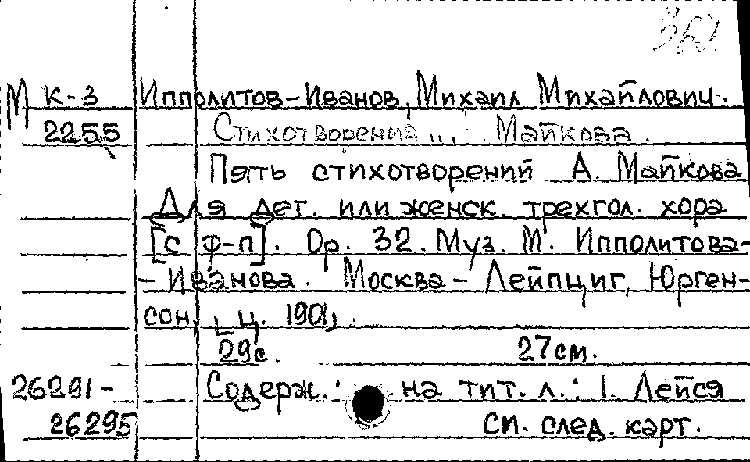 361
М К-3 Ипполитов-Иванов, Михаил Михайлович.
2255 Стихотворения ... Майкова.
Пять стихотворений А. Майкова
Для дет. или женск. трехгол. хора
[с ф-п]. Ор. 32. Муз. М. Ипполитова-
- Иванова. Москва - Лейпциг, Юрген-
сон, ц. 1901,.
29с. 27см.
26291- Содерж.: на тит. л.: 1. Лейся
26295 См. след. карт.